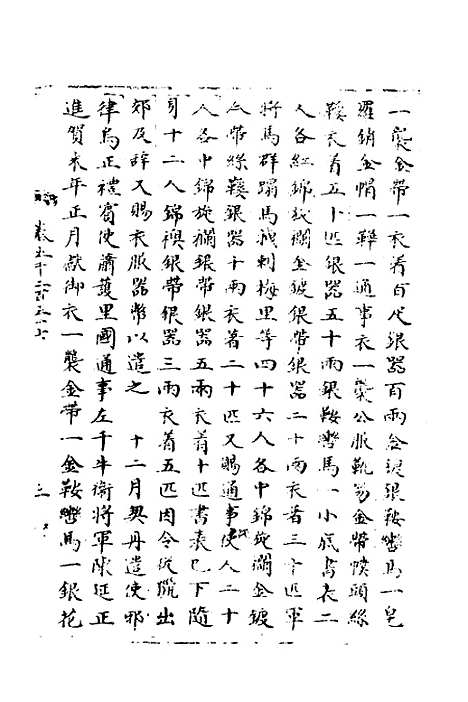 一襲金帶一衣着百疋銀器百兩金鍍銀鞍轡馬一皂
羅銷金帽一鞾一通事衣一襲公服靴笏金帶幞頭絲
鞵衣着五十匹銀器五十兩銀鞍轡馬一小底書表二
人各紅錦袄襴金鍍銀帶銀器二十兩衣着三十匹軍
將馬群蹋馬祗剌梅里等四十六人各中錦旋襴金鍍
銀帶絲鞵銀器十兩衣著二十匹又賜通事使人二十
人各中錦旋襴銀帶銀器五兩衣着十匹書表巳下隨
身十二人錦襖銀帶銀器三兩衣着五匹因令從獵出
郊及辞又賜衣服器幣以遣之　十二月契丹遣使耶
律烏正禮賓使蕭護里國通事左千牛衞將軍陳延正
進賀来年正月献御衣一襲金帶一金鞍轡馬一銀花
卷五千二百五十七
三